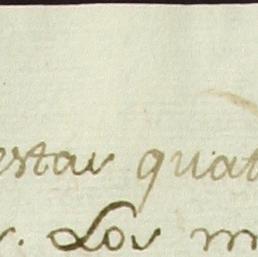 estar quat
r. Los m